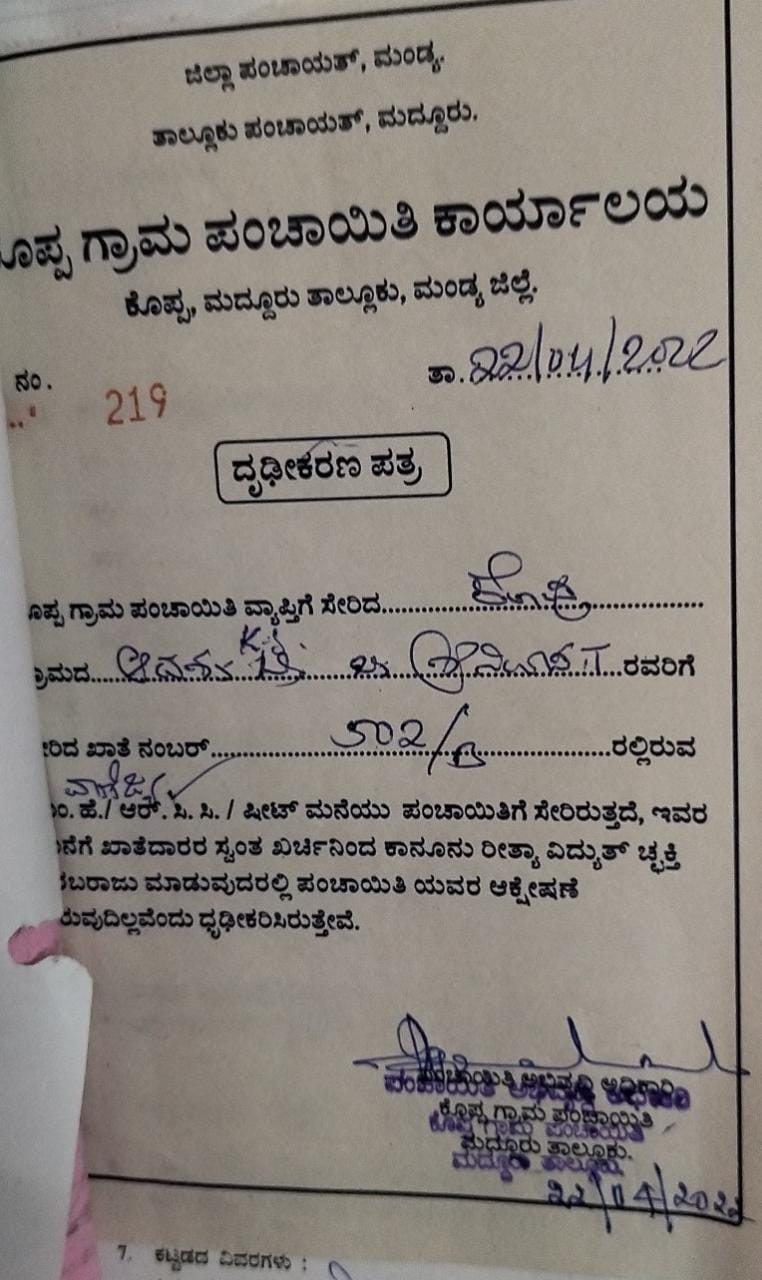 ಜಿಲ್ಲಾ ಪಂಚಾಯತ್, ಮಂಡ್ಯ.
ತಾಲ್ಲೂಕು ಪಂಚಾಯತ್, ಮದ್ದೂರು.
ಕೊಪ್ಪ ಗ್ರಾಮ ಪಂಚಾಯಿತಿ ಕಾರ್ಯಾಲಯ
ಕೊಪ್ಪ, ಮದ್ದೂರು ತಾಲ್ಲೂಕು, ಮಂಡ್ಯ ಜಿಲ್ಲೆ.
ನಂ. 219 ತಾ. 22/04/2022
ದೃಢೀಕರಣ ಪತ್ರ
ಪ್ಪ ಗ್ರಾಮ ಪಂಚಾಯಿತಿ ವ್ಯಾಪ್ತಿಗೆ ಸೇರಿದ ಕೊಪ್ಪ
ಮದ ರವರಿಗೆ
ರಿದ ಖಾತೆ ನಂಬರ್ 502/ ರಲ್ಲಿರುವ
ಹೆ./ ಆರ್. ಸಿ. ಸಿ. / ಷೀಟ್ ಮನೆಯು ಪಂಚಾಯಿತಿಗೆ ಸೇರಿರುತ್ತದೆ, ಇವರ
ನೆಗೆ ಖಾತೆದಾರರ ಸ್ವಂತ ಖರ್ಚಿನಿಂದ ಕಾನೂನು ರೀತ್ಯಾ ವಿದ್ಯುತ್ ಚ್ಛಕ್ತಿ
ಬರಾಜು ಮಾಡುವುದರಲ್ಲಿ ಪಂಚಾಯಿತಿ ಯವರ ಆಕ್ಷೇಷಣೆ
ರುವುದಿಲ್ಲವೆಂದು ಧೃಢೀಕರಿಸಿರುತ್ತೇವೆ.
ಪಂಚಾಯಿತಿ ಅಭಿವೃದ್ಧಿ ಅಧಿಕಾರಿ
ಕೊಪ್ಪ ಗ್ರಾಮ ಪಂಚಾಯಿತಿ
ಮದ್ದೂರು ತಾಲ್ಲೂಕು.
22/04/2022
7. ಕಟ್ಟಡದ ವಿವರಗಳು :